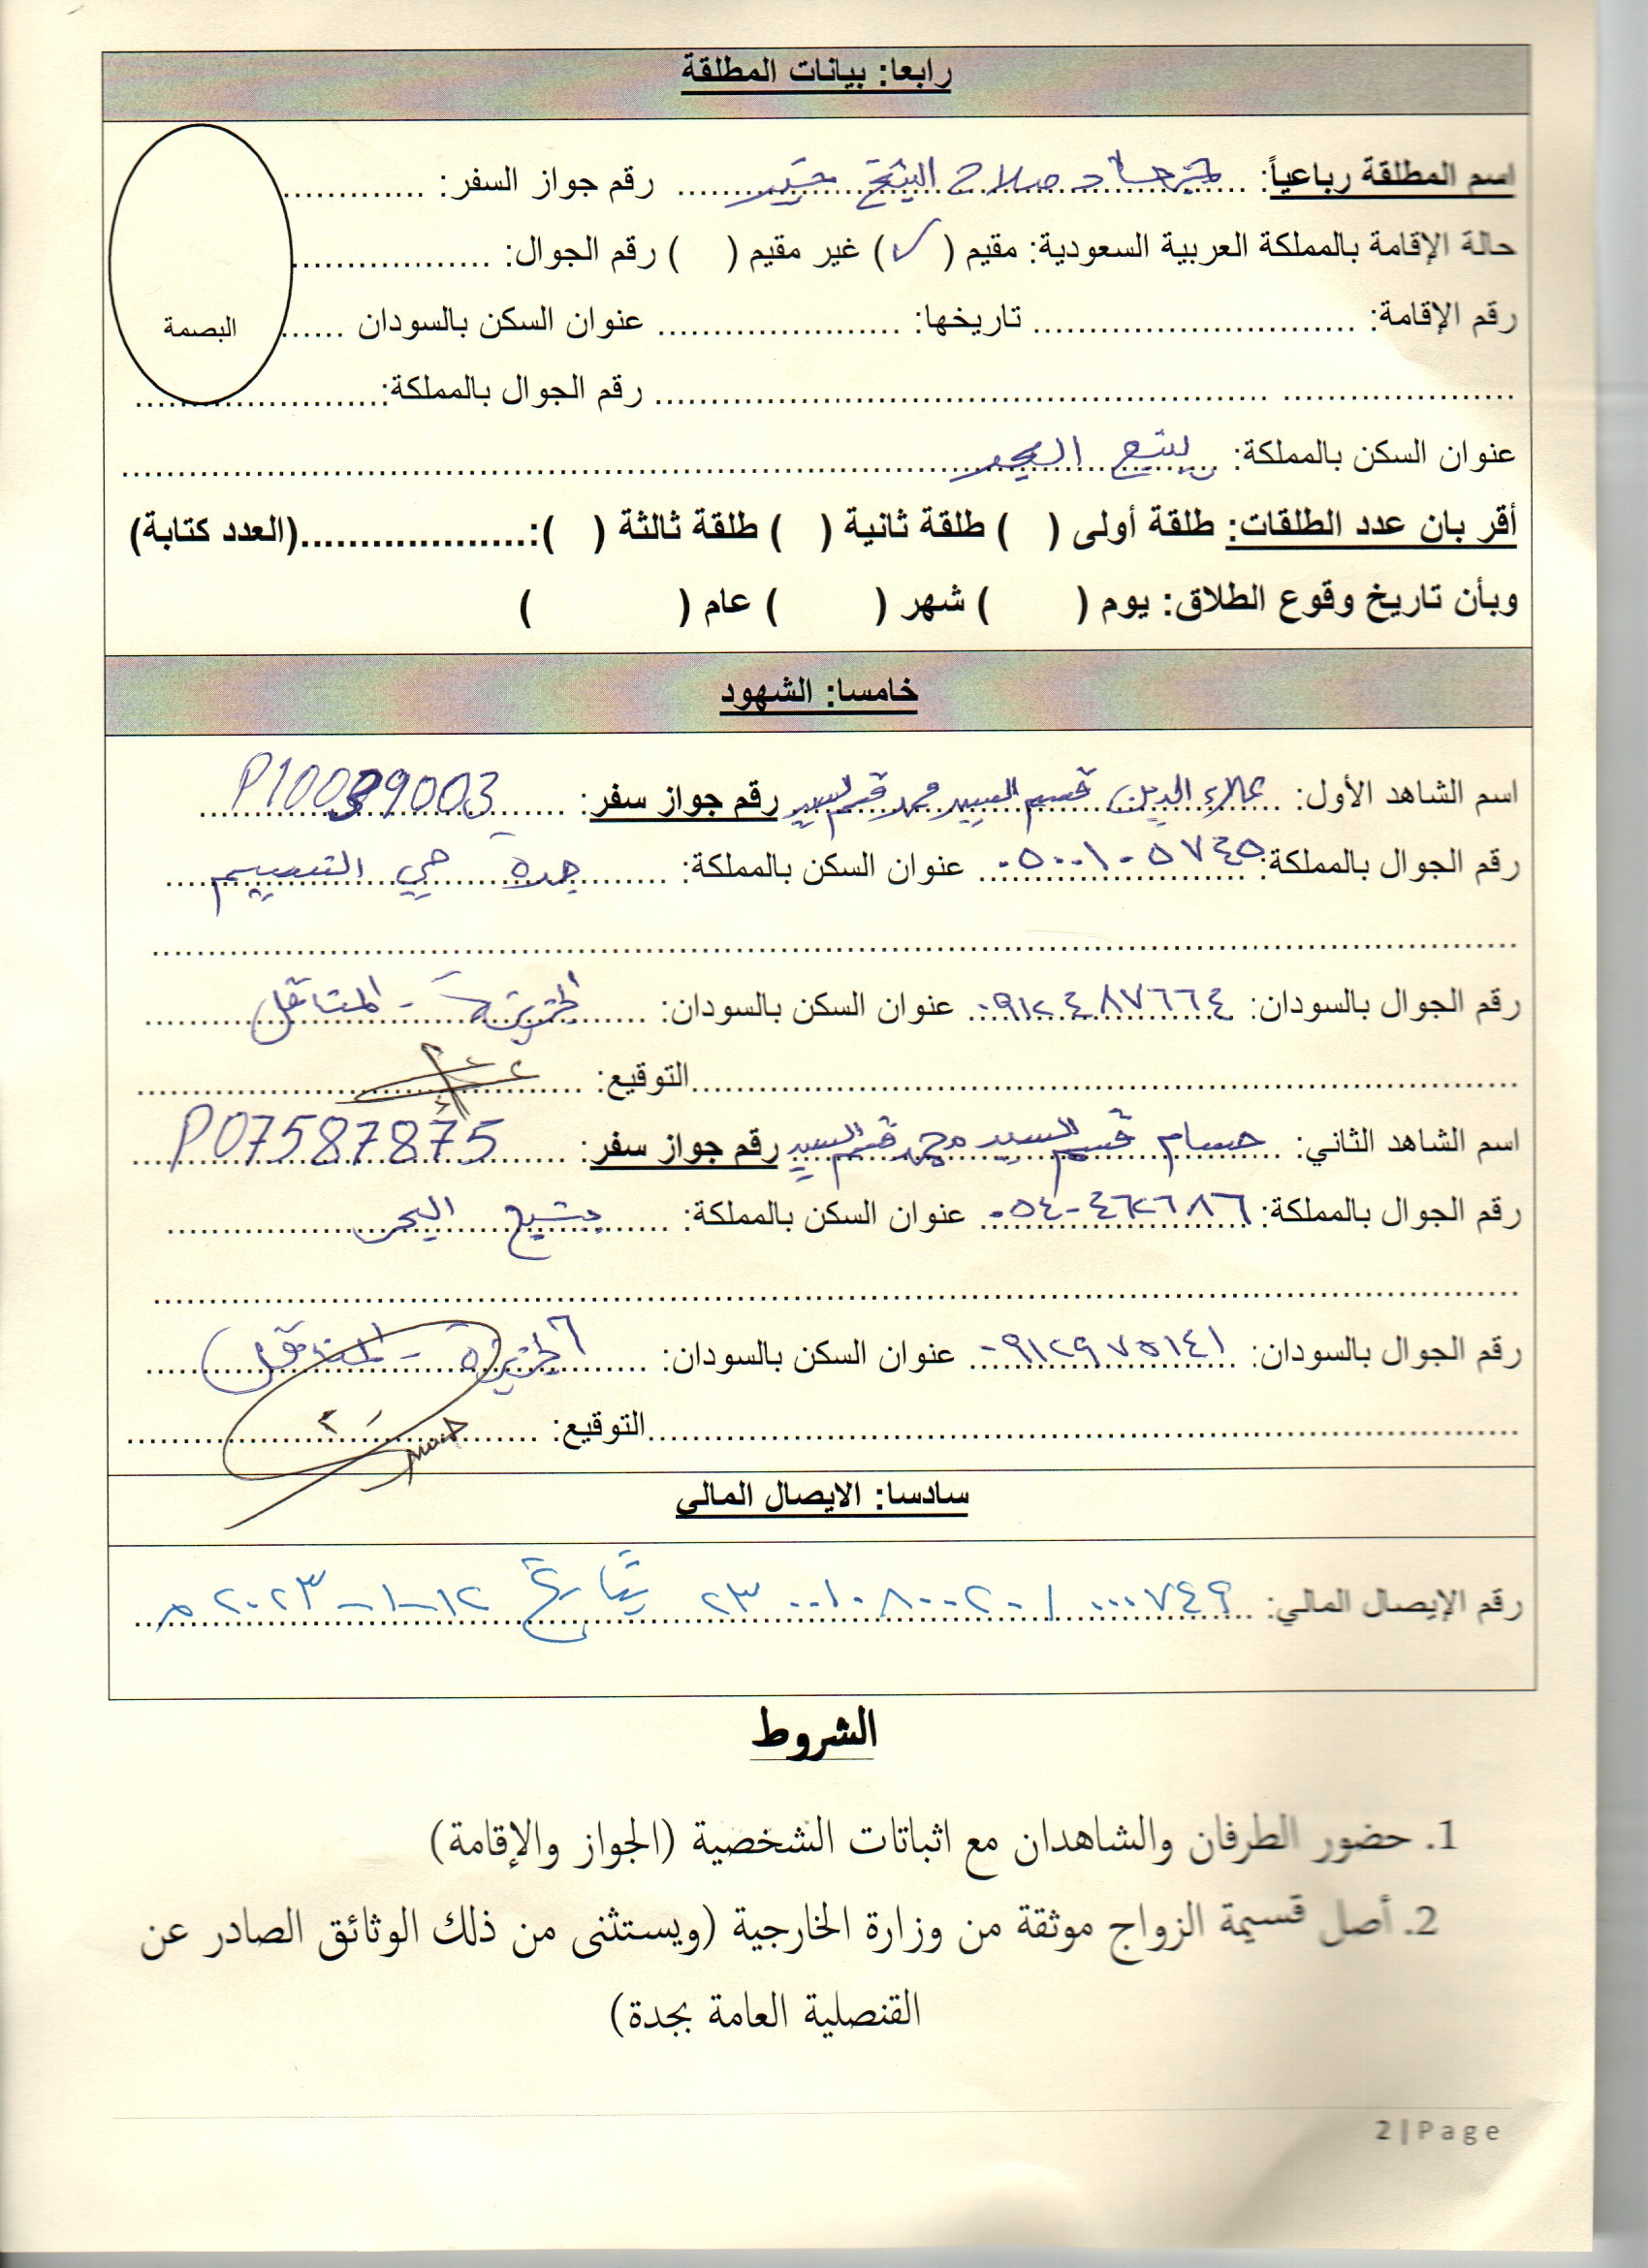 رابعا: بيانات المطلقة
اسم المطلقة رباعياً: صلاح الشيخ رقم جواز السفر: ..............
حالة الإقامة بالمملكة العربية السعودية: مقيم (✓) غير مقيم ( ) رقم الجوال: ..................
رقم الإقامة: ............................. تاريخها: ...................... عنوان السكن بالسودان ......
البصمة
.......................................................... رقم الجوال بالمملكة:.......................
عنوان السكن بالمملكة: ينبع البحر
أقر بان عدد الطلقات: طلقة أولى ( ) طلقة ثانية ( ) طلقة ثالثة ( ):...................(العدد كتابة)
وبأن تاريخ وقوع الطلاق: يوم ( ) شهر ( ) عام ( )
خامسا: الشهود
اسم الشاهد الأول: علاء الدين قسم السيد محمد قسم السيد رقم جواز سفر: P10039003
رقم الجوال بالمملكة: ٠٥٠٠١٠٥٧٤٥ عنوان السكن بالمملكة: جدة حي النسيم
رقم الجوال بالسودان: ٠٩١٢٤٨٧٦٦٤ عنوان السكن بالسودان: الجزيرة - المناقل
التوقيع:
اسم الشاهد الثاني: حسام قسم السيد محمد قسم السيد رقم جواز سفر: P07587875
رقم الجوال بالمملكة: ٠٥٤٠٤٦٢٦٨٦ عنوان السكن بالمملكة: ينبع البحر
رقم الجوال بالسودان: ٠٩١٢٩٧٥١٤١ عنوان السكن بالسودان: الجزيرة - المناقل
التوقيع:
سادسا: الايصال المالي
رقم الإيصال المالي: ٢٣٠٠١٠٨٠٠٢٠١٠٠٠٧٤٩ بتاريخ ١٢-١-٢٠٢٣م
الشروط
1. حضور الطرفان والشاهدان مع اثباتات الشخصية (الجواز والإقامة)
2. أصل قسيمة الزواج موثقة من وزارة الخارجية (ويستثنى من ذلك الوثائق الصادر عن
القنصلية العامة بجدة)
2 | Page